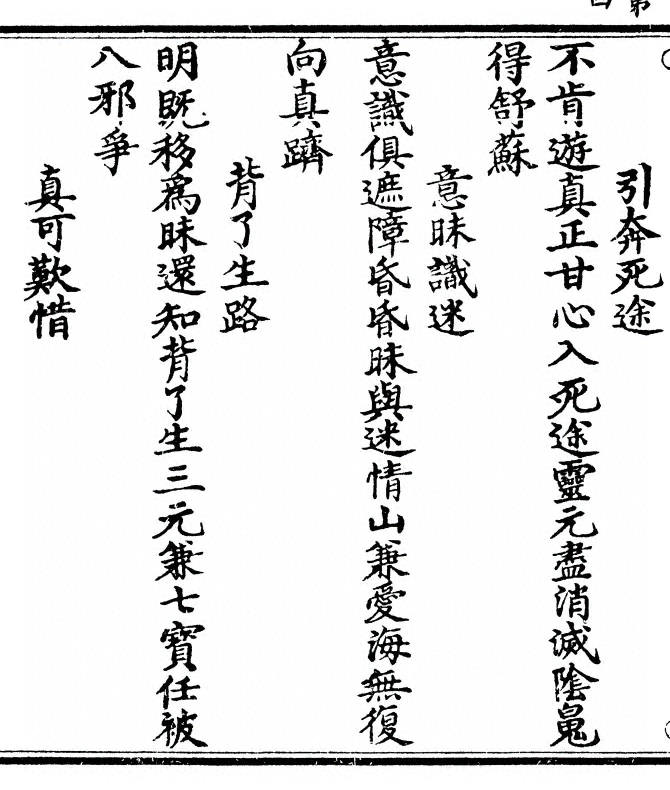 引奔死途
不肯遊真正甘心入死途靈元盡消滅陰鬼
得舒蘇
意昧識迷
意識俱遮障昏昏昧與迷情山兼愛海無復
向真躋
背了生路
明既移為昧還知背了生三元兼七寶任被
八邪爭
真可歎惜